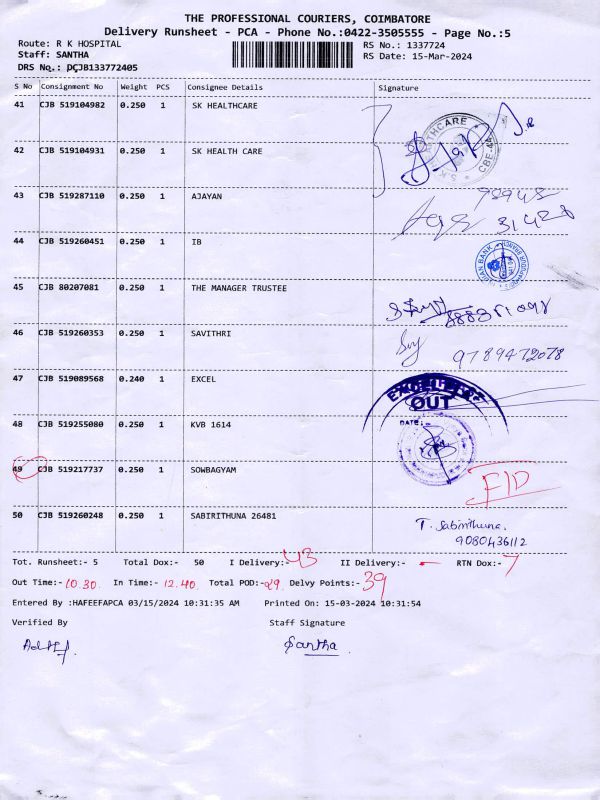 THE PROFESSIONAL COURIERS, COIMBATORE
Delivery Runsheet - PCA - Phone No.:0422-3505555 - Page No.:5
Route: R K HOSPITAL
Staff: SANTHA
DRS No.: DCJB133772405
RS No.: 1337724
RS Date: 15-Mar-2024
S No Consignment No Weight PCS Consignee Details Signature
41 CJB 519104982 0.250 1 SK HEALTHCARE
42 CJB 519104931 0.250 1 SK HEALTH CARE
43 CJB 519287110 0.250 1 AJAYAN
44 CJB 519260451 0.250 1 IB
45 CJB 80207081 0.250 1 THE MANAGER TRUSTEE
46 CJB 519260353 0.250 1 SAVITHRI 9789472078
47 CJB 519089568 0.240 1 EXCEL
OUT
48 CJB 519255080 0.250 1 KVB 1614
DATE:
49 CJB 519217737 0.250 1 SOWBAGYAM
50 CJB 519260248 0.250 1 SABIRITHUNA 26481 T. Sabirithuna.
9080436112
Tot. Runsheet:- 5 Total Dox:- 50 I Delivery:- 43 II Delivery:- - RTN Dox:- 7
Out Time:- 10.30 In Time:- 12.40 Total POD:- 29 Delvy Points:- 39
Entered By :HAFEEFAPCA 03/15/2024 10:31:35 AM Printed On: 15-03-2024 10:31:54
Verified By Staff Signature
Santha